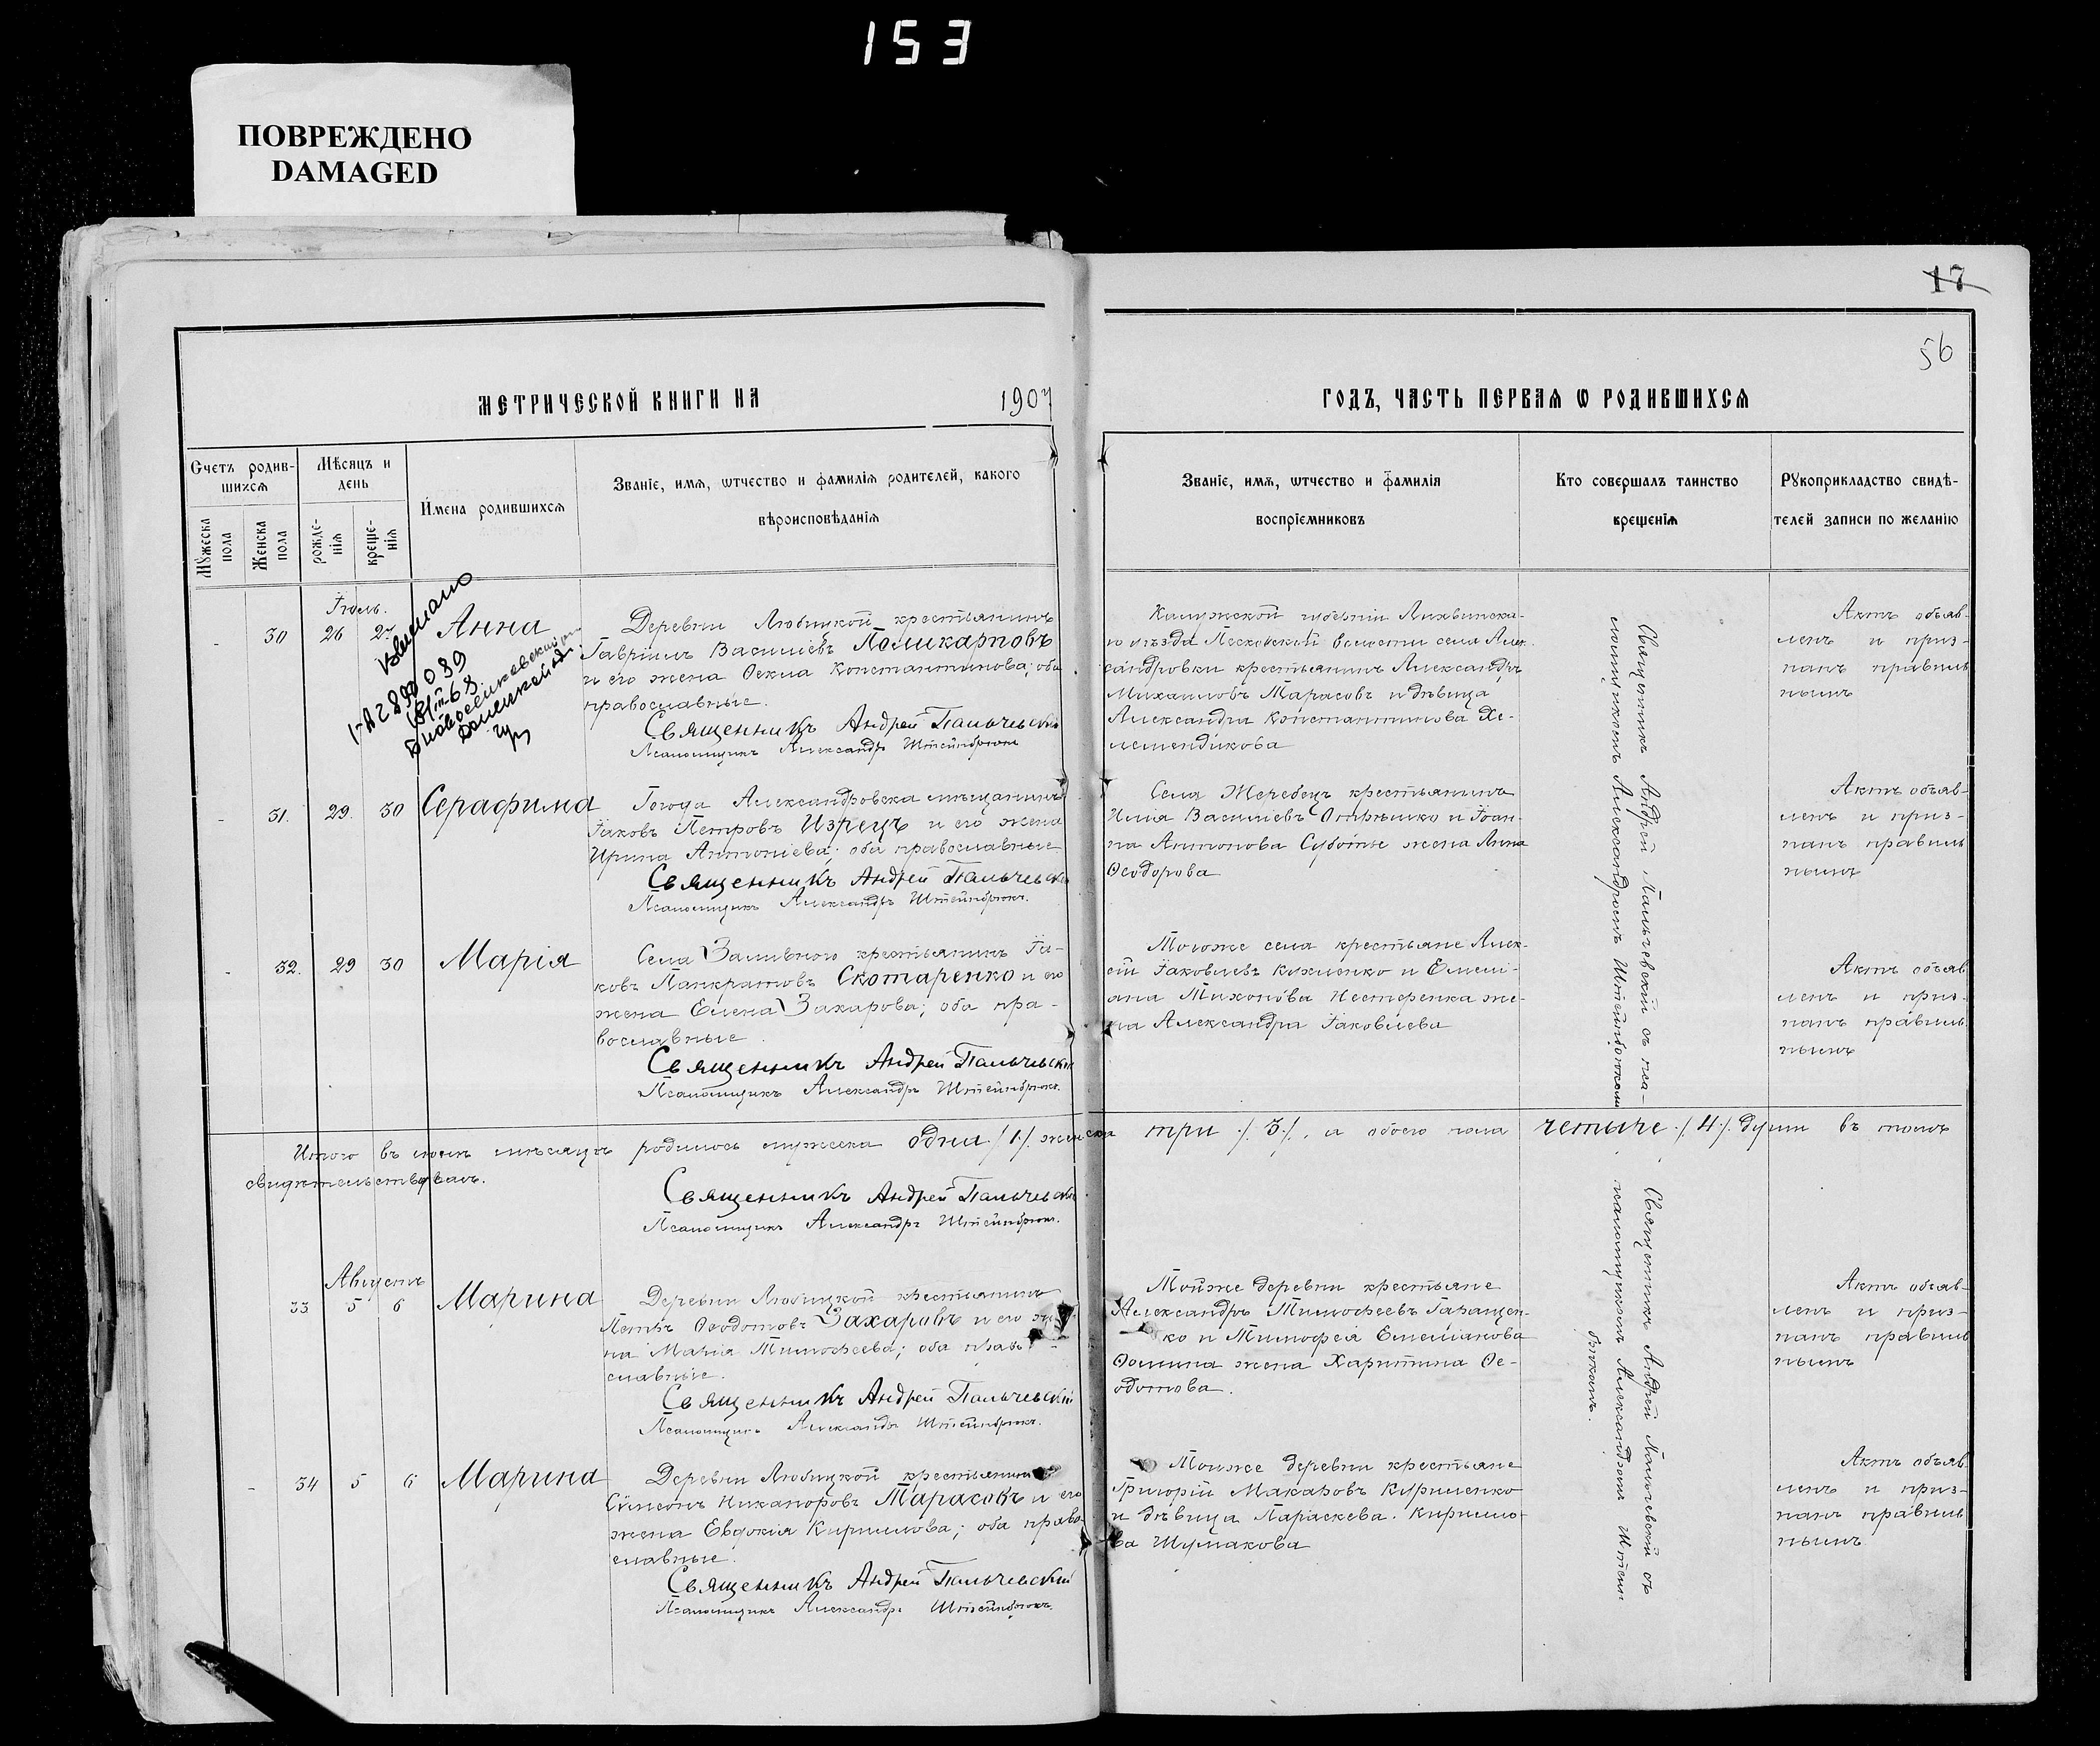 153
ПОВРЕЖДЕНО
DAMAGED
17
56
МЕТРИЧЕСКОЙ КНИГИ НА 1907
ГОДЪ, ЧАСТЬ ПЕРВАЯ Ѡ РОДИВШИХСЯ
Счетъ родив-
шихся
Мѣсяцъ и
день
Мужеска
пола
Женска
пола
рожде-
нія
креще-
нія
Имена родившихся
Званіе, имя, ѡтчество и фамилія родителей, какого
вѣроисповѣданія
Званіе, имя, ѡтчество и фамилія
воспріемниковъ
Кто совершалъ таинство
крещенія
Рукоприкладство свидѣ-
телей записи по желанію
Іюль.
- 30 26 27 Анна
Деревни Любицкой крестьянинъ
Гавріилъ Василіевъ Поликарповъ
и его жена Ѳекла Константинова; оба
православные.
Священникъ Андрей Пальчевскій
Псаломщикъ Александръ Штейнбрюкъ
Калужской губерніи Лихвинска-
го уѣзда Песковской волости села Алек-
сандровки крестьянинъ Александръ
Михаиловъ Тарасовъ и дѣвица
Александра Константинова
Актъ объяв-
ленъ и приз-
нанъ правиль
нымъ
- 31. 29. 30 Серафима
Города Александровска мѣщанинъ
Іаковъ Петровъ Изрецъ и его жена
Ирина Антоніева; оба православные
Священникъ Андрей Пальчевскій
Псаломщикъ Александръ Штейнбрюкъ.
Села Жеребецъ крестьянинъ
Илія Василіевъ Отрѣшко и Іоан-
на Антонова Суботы жена Анна
Ѳеодорова
Актъ объяв-
ленъ и приз-
нанъ правиль
нымъ
- 32. 29 30 Марія
Села Заливного крестьянинъ Іа-
ковъ Панкратовъ Скотаренко и его
жена Елена Захарова; оба пра-
вославные.
Священникъ Андрей Пальчевскій
Псаломщикъ Александръ Штейнбрюкъ.
Тогоже села крестьяне Алек-
сій Іаковлевъ Кухленко и Емелі-
ана Тихонова Нестеренка же-
на Александра Іаковлева
Актъ объяв
ленъ и приз-
нанъ правиль
нымъ
Священникъ Андрей Пальчевскій съ пса-
ломщикомъ Александромъ Штейнбрюкомъ
Итого въ іюлѣ мѣсяцѣ родилось мужеска одна /1/ женска три /3/, а обоего пола четыре /4/ души въ томъ
свидѣтельствовалъ.
Священникъ Андрей Пальчевскій
Псаломщикъ Александръ Штейнбрюкъ.
Августъ
33 5 6 Марина
Деревни Любицкой крестьянинъ
Петръ Ѳеодотовъ Захаровъ и его же-
на Марія Тимоѳеева; оба право-
славные.
Священникъ Андрей Пальчевскій
Псаломщикъ Александръ Штейнбрюкъ.
Тойже деревни крестьяне
Александръ Тимоѳеевъ Гаращен-
ко и Тимоѳея Емеліанова
Ѳомина жена Харитина Ѳе-
одотова.
Актъ объяв-
ленъ и приз-
нанъ правиль
нымъ
- 34 5 6 Марина
Деревни Любицкой крестьянинъ
Сѵмеонъ Никаноровъ Тарасовъ и его
жена Евдокія Кириллова; оба право
славные.
Священникъ Андрей Пальчевскій
Псаломщикъ Александръ Штейнбрюкъ.
Тойже деревни крестьяне
Григорій Макаровъ Куриленко
и дѣвица Параскева Кирилло-
ва Шумакова
Актъ объяв-
ленъ и приз-
нанъ правиль
нымъ
Священникъ Андрей Пальчевскій съ
псаломщикомъ Александромъ Штейн
брюкомъ.